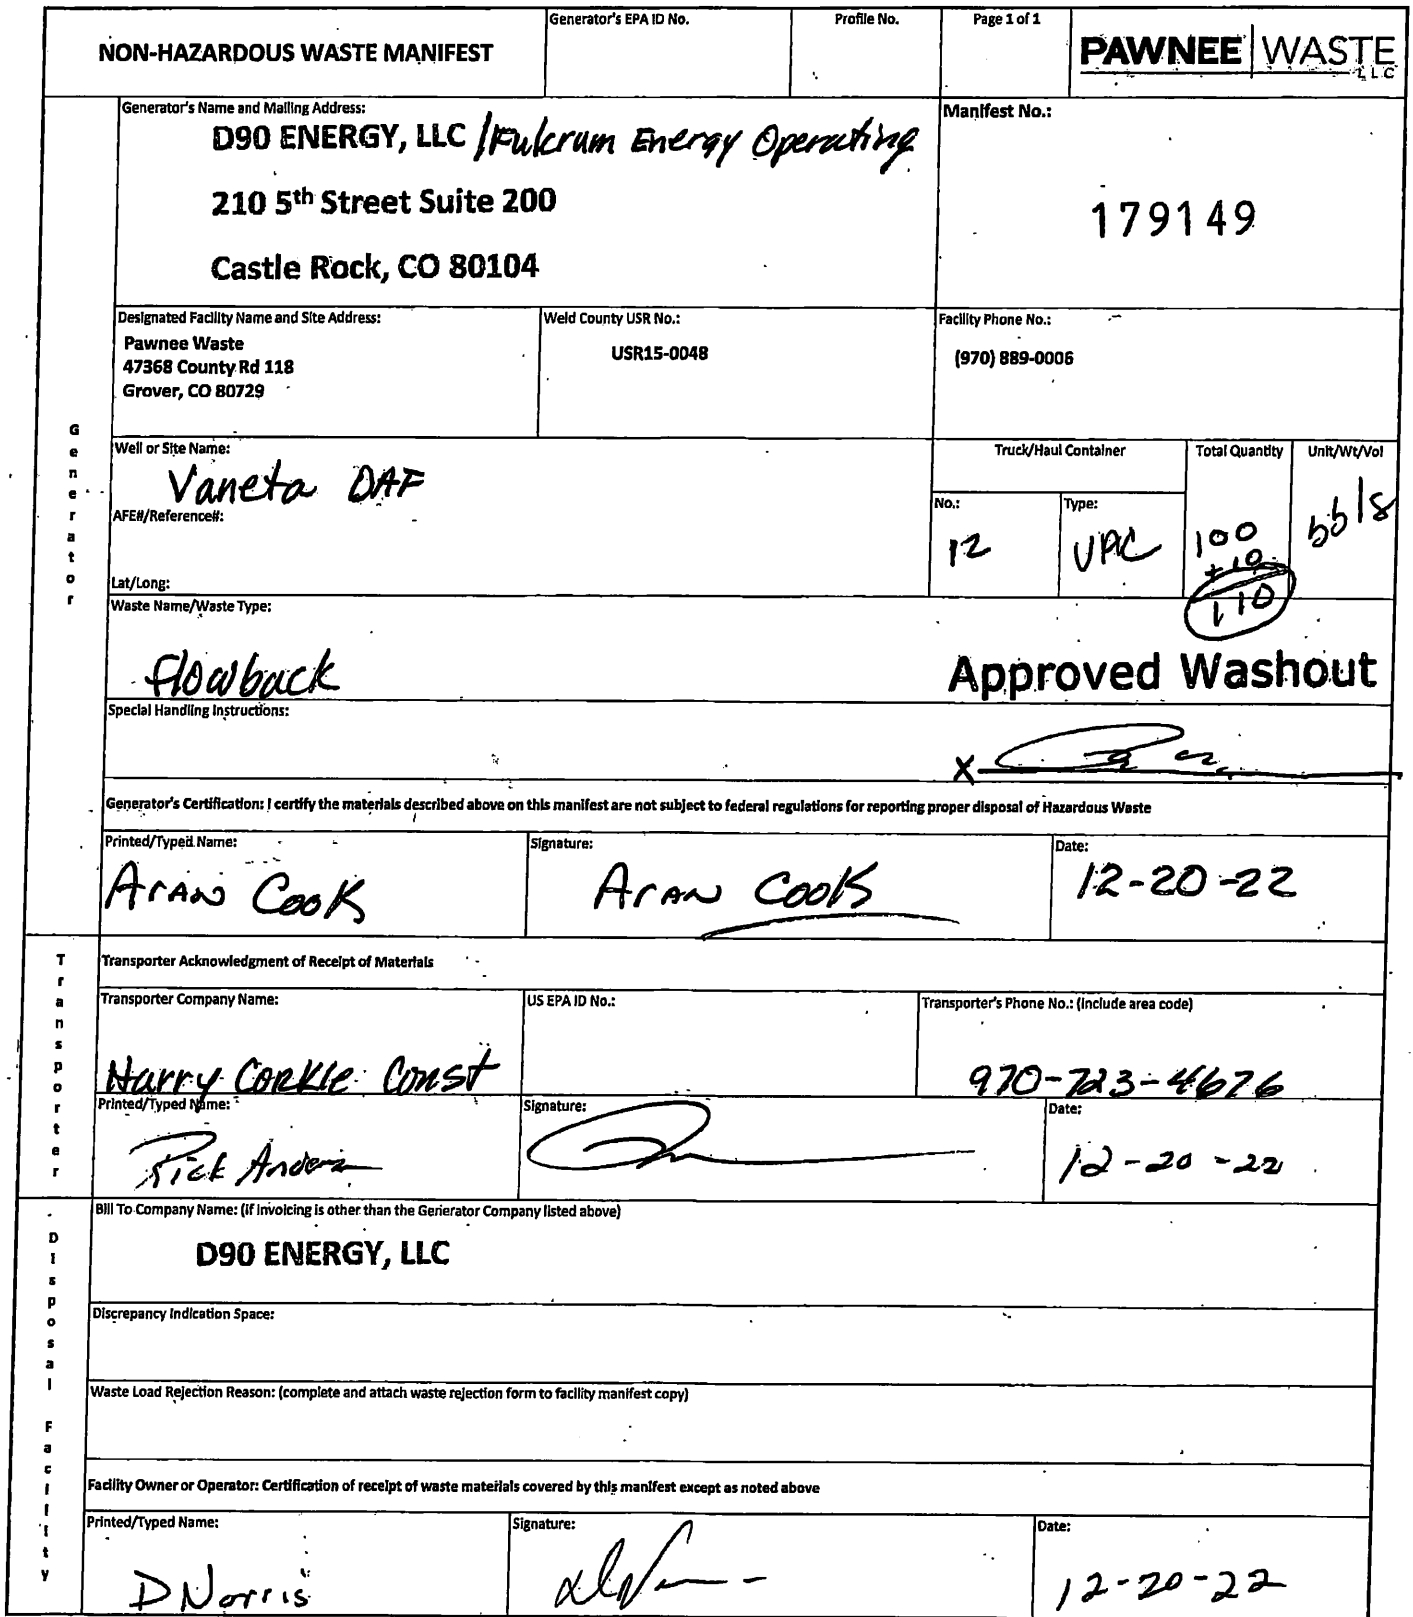 NON-HAZARDOUS WASTE MANIFEST
Generator's EPA ID No.
Profile No.
Page 1 of 1
PAWNEE WASTE LLC
Generator's Name and Mailing Address:
D90 ENERGY, LLC /Fulcrum Energy Operating
210 5th Street Suite 200
Castle Rock, CO 80104
Manifest No.:
179149
Designated Facility Name and Site Address:
Pawnee Waste
47368 County Rd 118
Grover, CO 80729
Weld County USR No.:
USR15-0048
Facility Phone No.:
(970) 889-0006
Generator
Well or Site Name:
Vaneta DAF
AFE#/Reference#:
Lat/Long:
Truck/Haul Container
No.:
12
Type:
VAC
Total Quantity
100
+10
110
Unit/Wt/Vol
bbls
Waste Name/Waste Type:
Flowback
Approved Washout
Special Handling Instructions:
X
Generator's Certification: I certify the materials described above on this manifest are not subject to federal regulations for reporting proper disposal of Hazardous Waste
Printed/Typed Name:
Aran Cook
Signature:
Aran Cook
Date:
12-20-22
Transporter
Transporter Acknowledgment of Receipt of Materials
Transporter Company Name:
Harry Corkle Const
US EPA ID No.:
Transporter's Phone No.: (include area code)
970-723-4676
Printed/Typed Name:
Rick Anderson
Signature:
Date:
12-20-22
Disposal Facility
Bill To Company Name: (if invoicing is other than the Generator Company listed above)
D90 ENERGY, LLC
Discrepancy Indication Space:
Waste Load Rejection Reason: (complete and attach waste rejection form to facility manifest copy)
Facility Owner or Operator: Certification of receipt of waste materials covered by this manifest except as noted above
Printed/Typed Name:
D Norris
Signature:
Date:
12-20-22